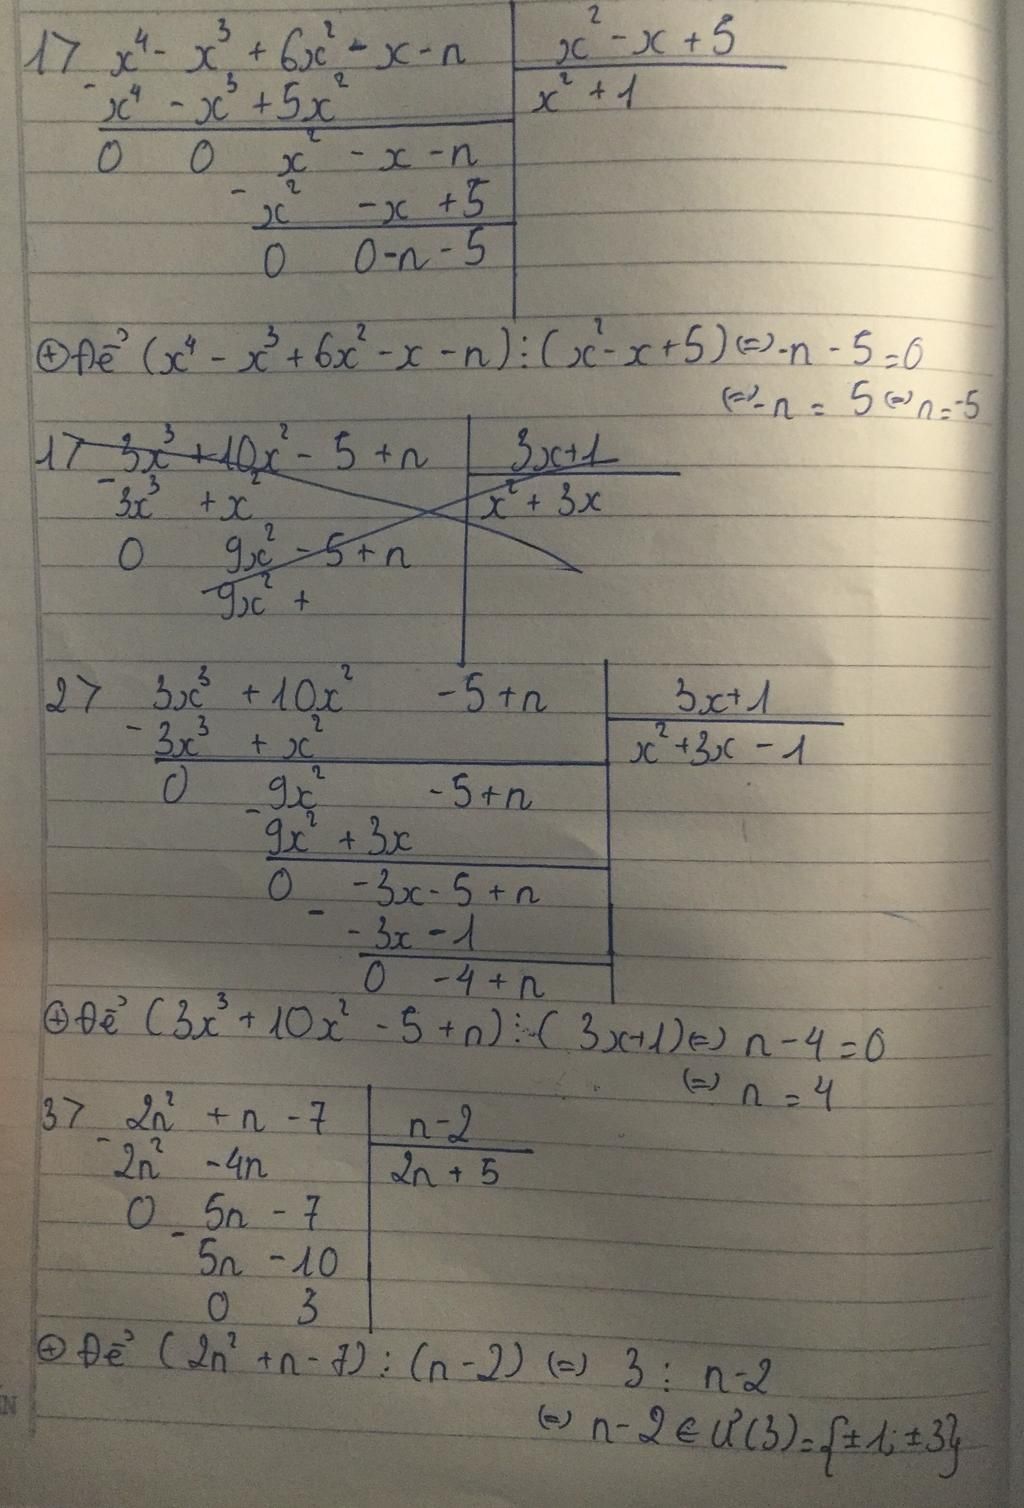 1> x⁴ - x³ + 6x² - x - n | x² - x + 5
- x⁴ - x³ + 5x² | x² + 1
0 0 x² - x - n
- x² - x + 5
0 0 - n - 5
⊕ Để (x⁴ - x³ + 6x² - x - n) ⋮ (x² - x + 5) (=) -n - 5 = 0
(=) -n = 5 (=) n = -5
1> 3x³ + 10x² - 5 + n | 3x+1
- 3x³ + x² | x² + 3x
0 9x² - 5 + n
- 9x² +
2> 3x³ + 10x² - 5 + n | 3x+1
- 3x³ + x² | x² + 3x - 1
0 9x² - 5 + n
- 9x² + 3x
0 - 3x - 5 + n
- - 3x - 1
0 - 4 + n
⊕ Để (3x³ + 10x² - 5 + n) ⋮ (3x+1) (=) n - 4 = 0
(=) n = 4
3> 2n² + n - 7 | n - 2
- 2n² - 4n | 2n + 5
0 5n - 7
- 5n - 10
0 3
⊕ Để (2n² + n - 7) ⋮ (n - 2) (=) 3 ⋮ n - 2
(=) n - 2 ∈ Ư(3) = {±1; ±3}